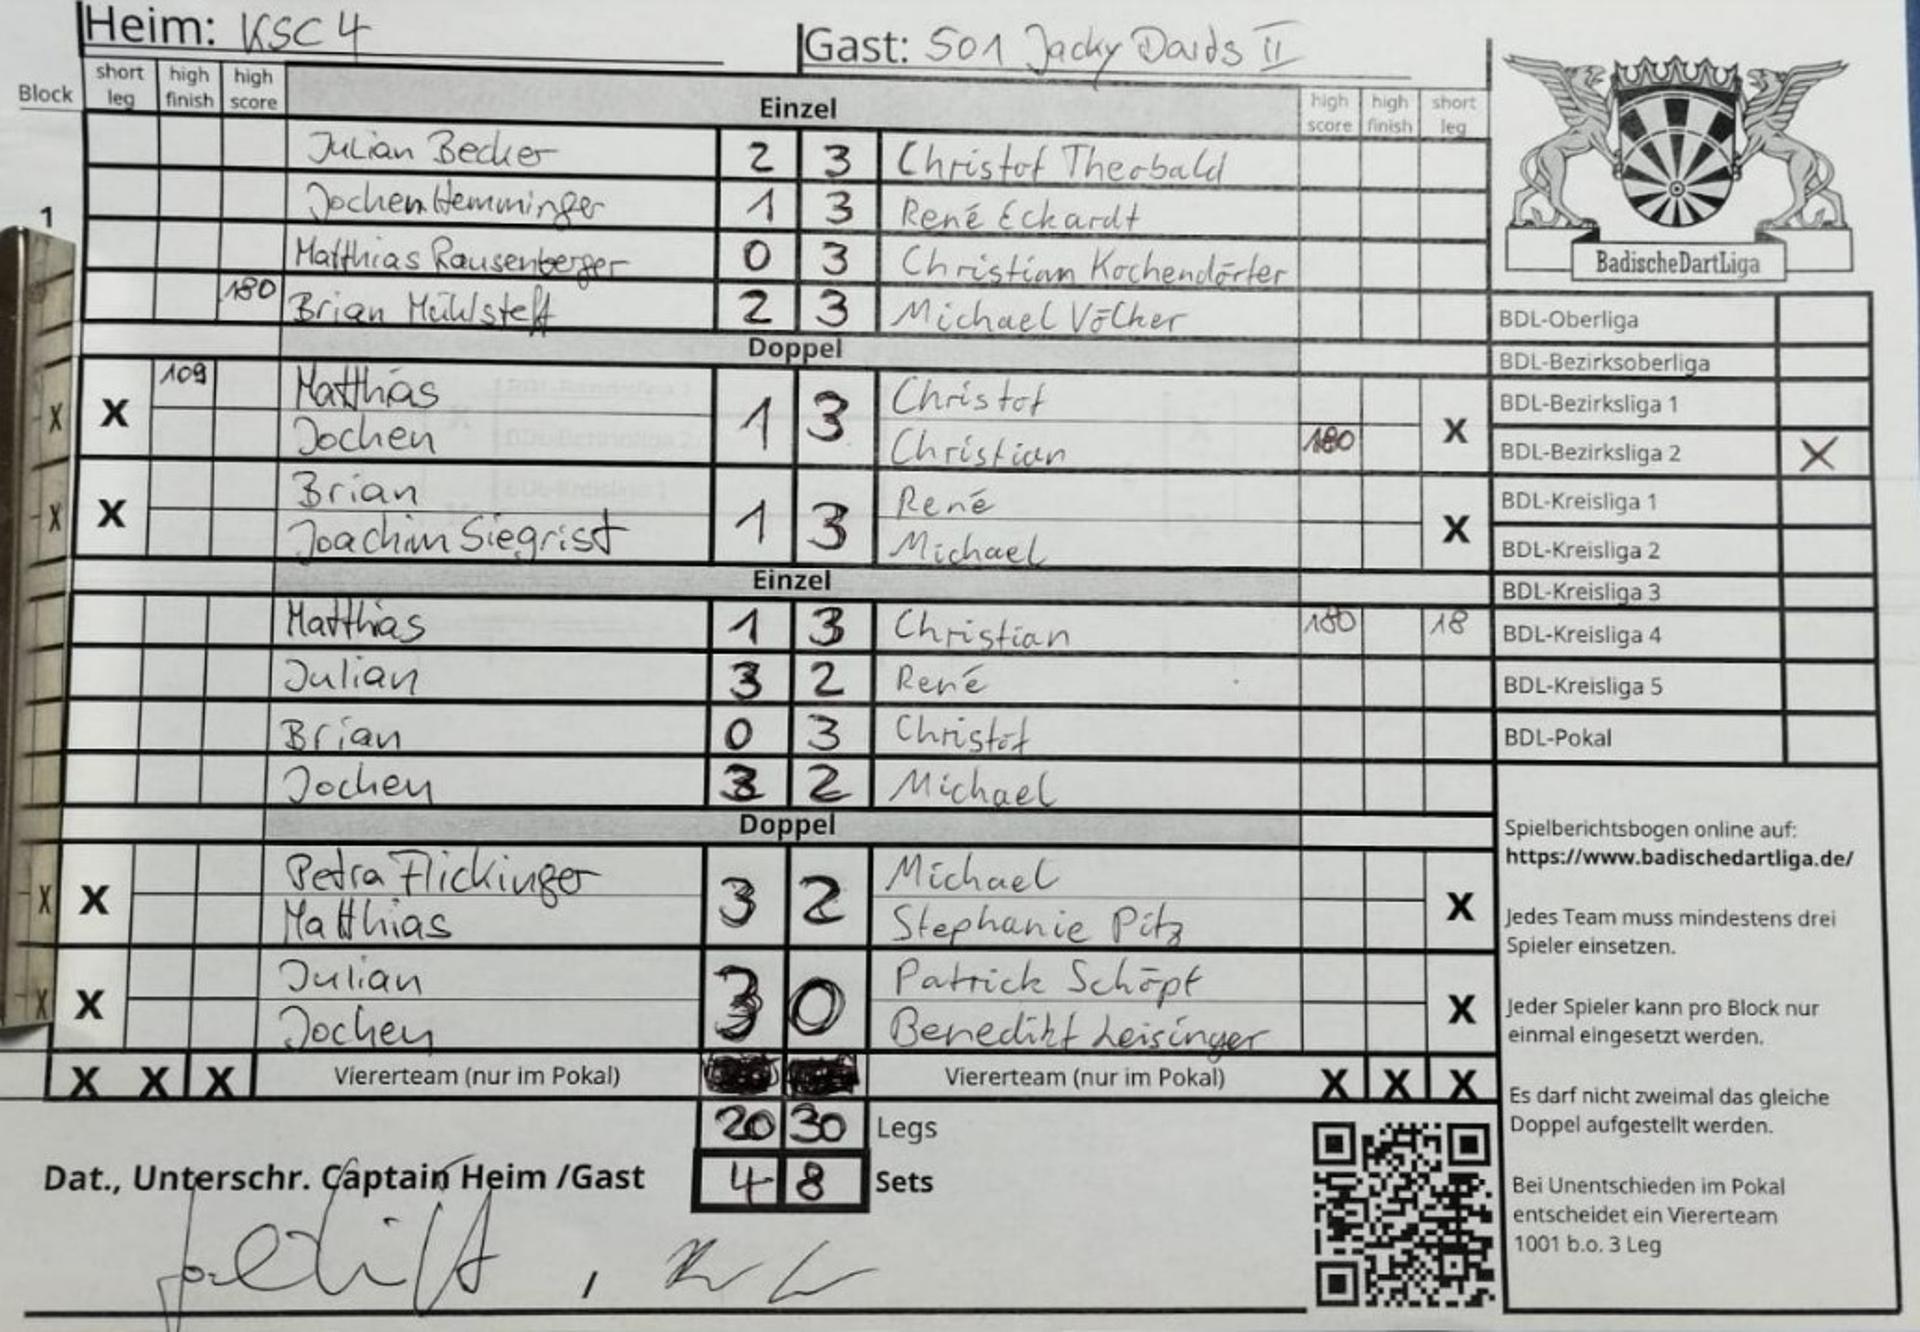 Heim: KSC 4 Gast: 501 Jacky Dards II
Block short leg high finish high score Einzel high score high finish short leg
Julian Becker 2 3 Christof Theobald
Jochen Hemminger 1 3 René Eckardt
1
Matthias Rausenberger 0 3 Christian Kochendörfer
180 Brian Mühlsteft 2 3 Michael Völker
BadischeDartLiga
Doppel
X X 109 Matthias 1 3 Christof X
Jochen Christian 180
X X Brian 1 3 René X
Joachim Siegrist Michael
Einzel
Matthias 1 3 Christian 180 18
Julian 3 2 René
Brian 0 3 Christof
Jochen 3 2 Michael
Doppel
X X Petra Flickinger 3 2 Michael X
Matthias Stephanie Pitz
X X Julian 3 0 Patrick Schöpf X
Jochen Benedikt Leisinger
X X X Viererteam (nur im Pokal) Viererteam (nur im Pokal) X X X
20 30 Legs
Dat., Unterschr. Captain Heim /Gast 4 8 Sets
BDL-Oberliga
BDL-Bezirksoberliga
BDL-Bezirksliga 1
BDL-Bezirksliga 2 X
BDL-Kreisliga 1
BDL-Kreisliga 2
BDL-Kreisliga 3
BDL-Kreisliga 4
BDL-Kreisliga 5
BDL-Pokal
Spielberichtsbogen online auf:
https://www.badischedartliga.de/
Jedes Team muss mindestens drei
Spieler einsetzen.
Jeder Spieler kann pro Block nur
einmal eingesetzt werden.
Es darf nicht zweimal das gleiche
Doppel aufgestellt werden.
Bei Unentschieden im Pokal
entscheidet ein Viererteam
1001 b.o. 3 Leg